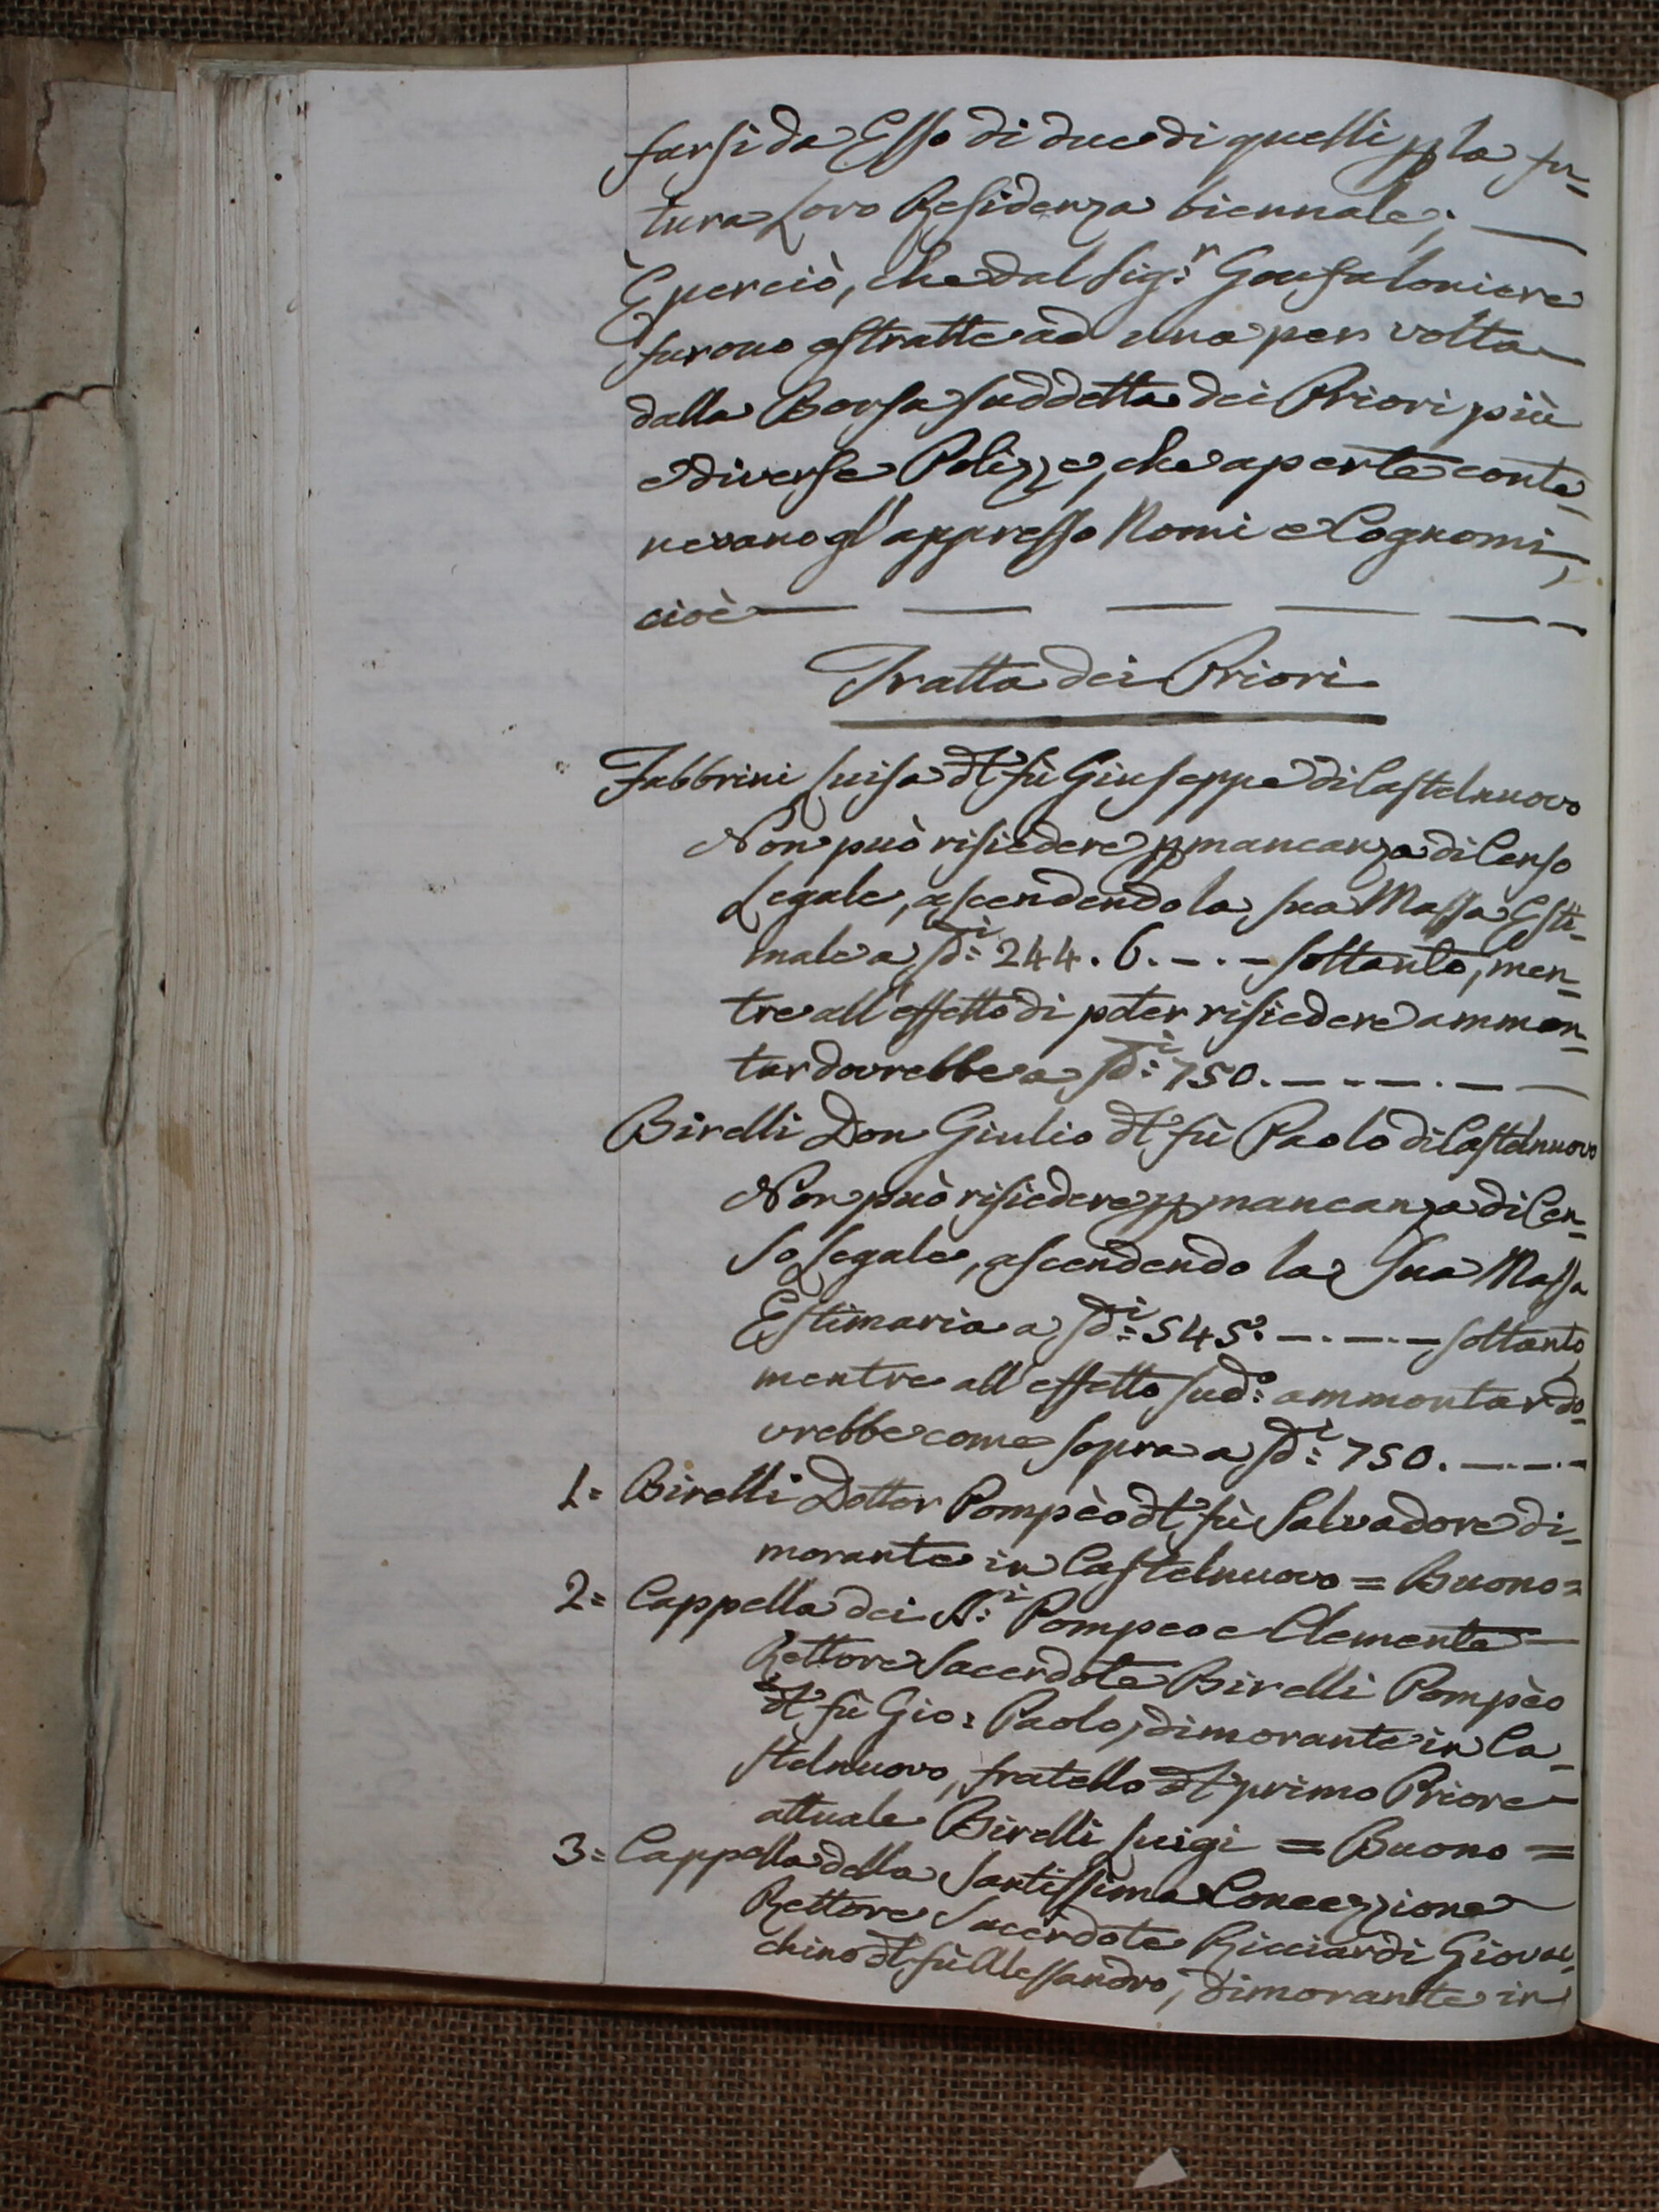 farsi da Esso di due di quelli p la fu-
tura Loro Residenza biennale; —
È perciò, che dal Sig.r Gonfaloniere
furono estratte ad una per volta
dalla Borsa suddetta dei Priori più
e diverse Polizze, che aperte conte-
nevano gl'appresso Nomi e Cognomi,
cioè — — — — — -
Tratta dei Priori
Fabbrini Luisa dl fù Giuseppe di Castelnuovo
Non può risiedere p mancanza di Censo
Legale, ascendendo la sua Massa Esti-
male a sdi: 244. 6. —. — soltanto, men-
tre all'effetto di poter risiedere ammon-
tar dovrebbe a sdi: 750. — - —. — —
Birelli Don Giulio dl fù Paolo di Castelnuovo
Non può risiedere p mancanza di Cen-
so Legale, ascendendo la Sua Massa
Estimaria a sdi: 545. —. —. — soltanto,
mentre all'effetto sudo: ammontar do-
vrebbe come sopra a sdi: 750. —. —. -
1= Birelli Dottor Pompèo dl fù Salvadore di-
morante in Castelnuovo = Buono =
2= Cappella dei SSi: Pompeo e Clemente —
Rettore Sacerdote Birelli Pompèo
dl fù Gio: Paolo, dimorante in Ca-
stelnuovo, fratello dl primo Priore
attuale Birelli Luigi = Buono =
3= Cappella della Santissima Concezzione
Rettore Sacerdote Ricciardi Giovac-
chino dl fù Alessandro, dimorante in